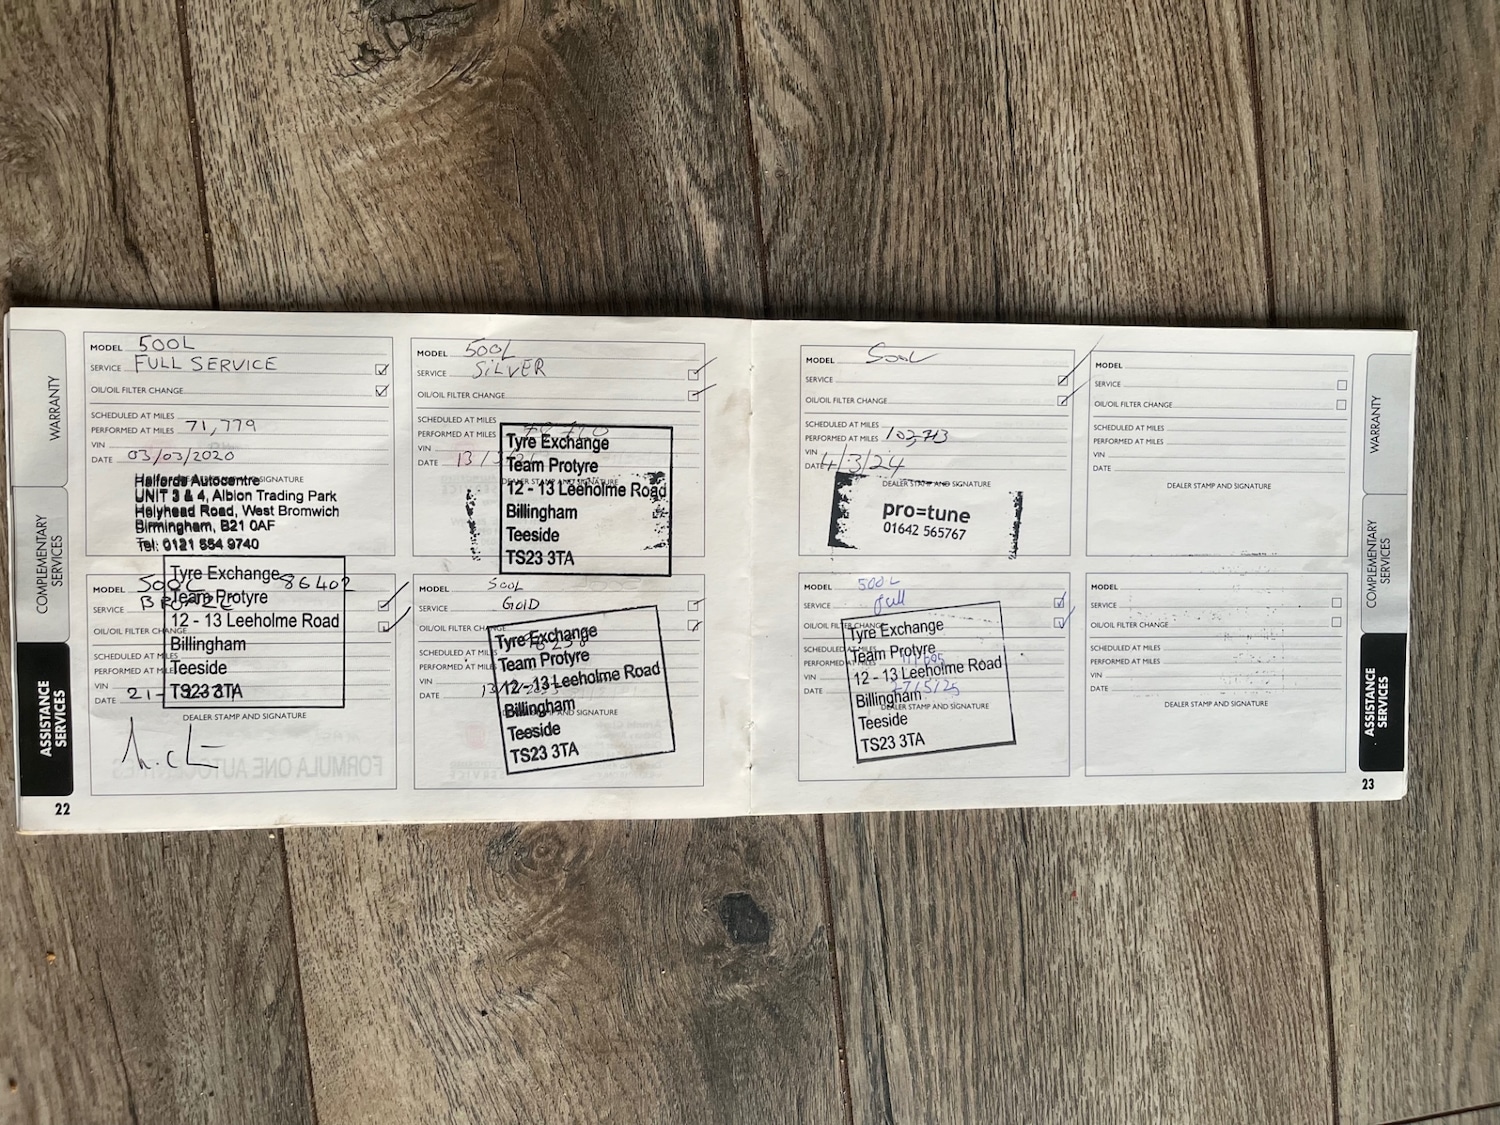 WARRANTY
COMPLEMENTARY
SERVICES
ASSISTANCE
SERVICES
22
MODEL 500L
SERVICE FULL SERVICE
OIL/OIL FILTER CHANGE
SCHEDULED AT MILES
PERFORMED AT MILES 71,779
VIN
DATE 03/03/2020
DEALER STAMP AND SIGNATURE
Halfords Autocentre
UNIT 3 & 4, Albion Trading Park
Holyhead Road, West Bromwich
Birmingham, B21 0AF
Tel: 0121 554 9740
MODEL 500L
SERVICE SILVER
OIL/OIL FILTER CHANGE
SCHEDULED AT MILES
PERFORMED AT MILES
VIN
DATE 13/
DEALER STAMP AND SIGNATURE
Tyre Exchange
Team Protyre
12 - 13 Leeholme Road
Billingham
Teeside
TS23 3TA
MODEL 500L 86402
SERVICE BRONZE
OIL/OIL FILTER CHANGE
SCHEDULED AT MILES
PERFORMED AT MILES
VIN
DATE 21-
DEALER STAMP AND SIGNATURE
Tyre Exchange
Team Protyre
12 - 13 Leeholme Road
Billingham
Teeside
TS23 3TA
MODEL 500L
SERVICE GOLD
OIL/OIL FILTER CHANGE
SCHEDULED AT MILES
PERFORMED AT MILES
VIN
DATE 13/
DEALER STAMP AND SIGNATURE
Tyre Exchange
Team Protyre
12 - 13 Leeholme Road
Billingham
Teeside
TS23 3TA
FORMULA ONE AUTOCENTRES
MODEL 500L
SERVICE
OIL/OIL FILTER CHANGE
SCHEDULED AT MILES
PERFORMED AT MILES 102,713
VIN
DATE 4/3/24
DEALER STAMP AND SIGNATURE
pro=tune
01642 565767
MODEL
SERVICE
OIL/OIL FILTER CHANGE
SCHEDULED AT MILES
PERFORMED AT MILES
VIN
DATE
DEALER STAMP AND SIGNATURE
MODEL 500L
SERVICE full
OIL/OIL FILTER CHANGE
SCHEDULED AT MILES
PERFORMED AT MILES
VIN
DATE 27/5/25
DEALER STAMP AND SIGNATURE
Tyre Exchange
Team Protyre
12 - 13 Leeholme Road
Billingham
Teeside
TS23 3TA
MODEL
SERVICE
OIL/OIL FILTER CHANGE
SCHEDULED AT MILES
PERFORMED AT MILES
VIN
DATE
DEALER STAMP AND SIGNATURE
WARRANTY
COMPLEMENTARY
SERVICES
ASSISTANCE
SERVICES
23